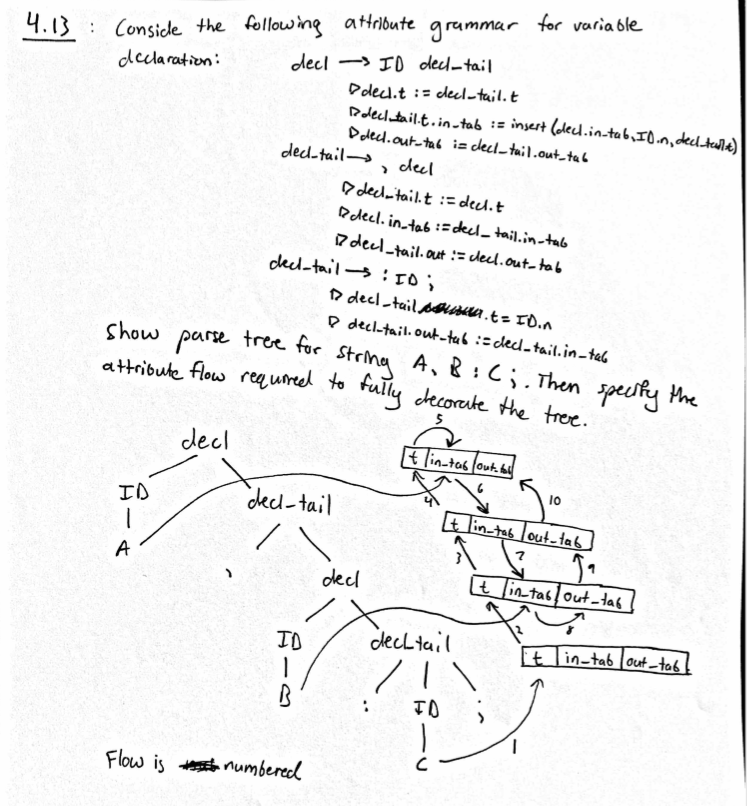 4.13 : Conside the following attribute grammar for variable
declaration:
decl → ID decl-tail
▷ decl.t := decl-tail.t
▷ decl_tail.t.in-tab := insert (decl.in-tab, ID.n, decl_tail.t)
▷ decl.out-tab := decl_tail.out_tab
decl-tail → , decl
▷ decl_tail.t := decl.t
▷ decl.in_tab := decl_tail.in-tab
▷ decl_tail.out := decl.out-tab
decl-tail → : ID ;
▷ decl-tail.t = ID.n
▷ decl-tail.out_tab := decl_tail.in-tab
Show parse tree for string A, B : C ;. Then specify the
attribute flow required to fully decorate the tree.
5
decl
t in-tab out-tab
ID decl-tail
4 6 10
A
t in-tab out-tab
, decl
3 7 9
t in-tab out-tab
ID decl-tail
2 8
t in-tab out-tab
B : ID ;
1
C
Flow is numbered